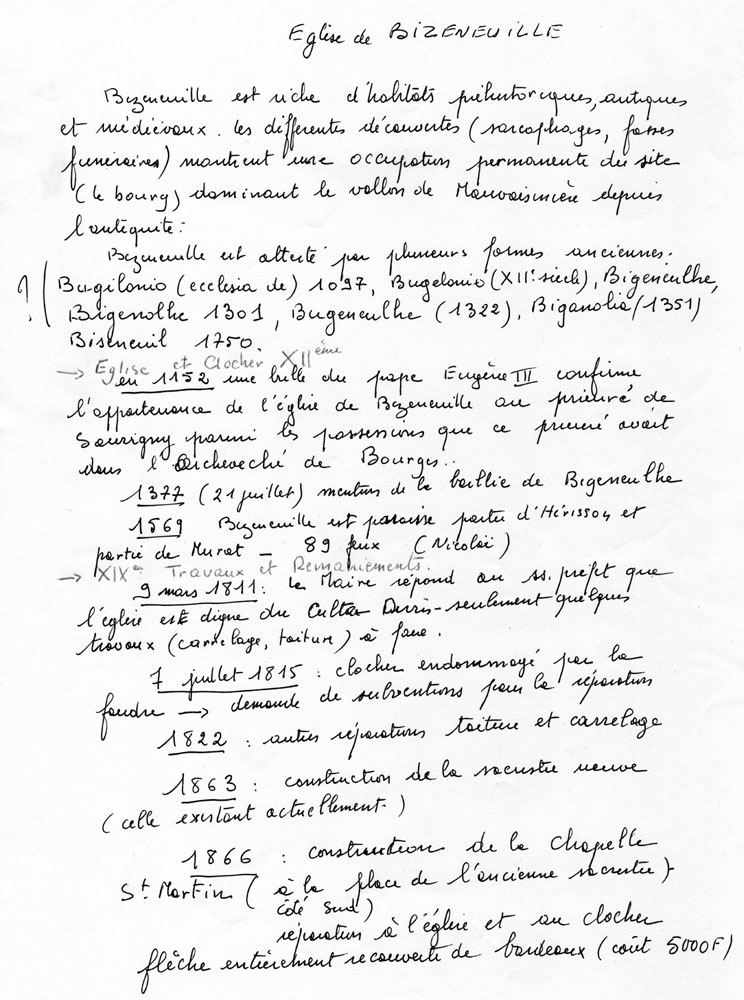 Eglise de BIZENEUILLE
Bizeneuille est riche d'habitats préhistoriques, antiques
et médiévaux. les différentes découvertes (sarcophages, fosses
funéraires) montrent une occupation permanente du site
(le bourg) dominant le vallon de Mauvaisinière depuis
l'antiquité.
Bizeneuille est attesté par plusieurs formes anciennes.
?! (Bugilonio (ecclesia de) 1097, Bugelonio (XIIe siècle), Bigenculhe,
Bigenolhe 1301, Bugeneulhe (1322), Biganolia (1351)
Biseneuil 1750.
→ Eglise et Clocher XIIème
en 1152 une bulle du pape Eugène III confirme
l'appartenance de l'église de Bizeneuille au prieuré de
Souvigny parmi les possessions que ce prieuré avait
dans l'Archevêché de Bourges..
1377 (21 juillet) mention de la baillie de Bigeneulhe
1569 Bizeneuille est paroisse partie d'Hérisson et
partie de Murat - 89 feux (Nicolaï)
→ XIXe Travaux et Remaniements.
9 mars 1811: Le Maire répond au ss. préfet que
l'église est digne du Culte Divin - seulement quelques
travaux (carrelage, toiture) à faire.
7 juillet 1815 : clocher endommagé par la
foudre → demande de subventions pour la réparation
1822 : autres réparations toiture et carrelage
1863 : construction de la sacristie neuve
(celle existant actuellement.)
1866 : construction de la chapelle
St Martin (à la place de l'ancienne sacristie)
côté sud)
réparation à l'église et au clocher
flèche entièrement recouverte de bardeaux (coût 5000F)